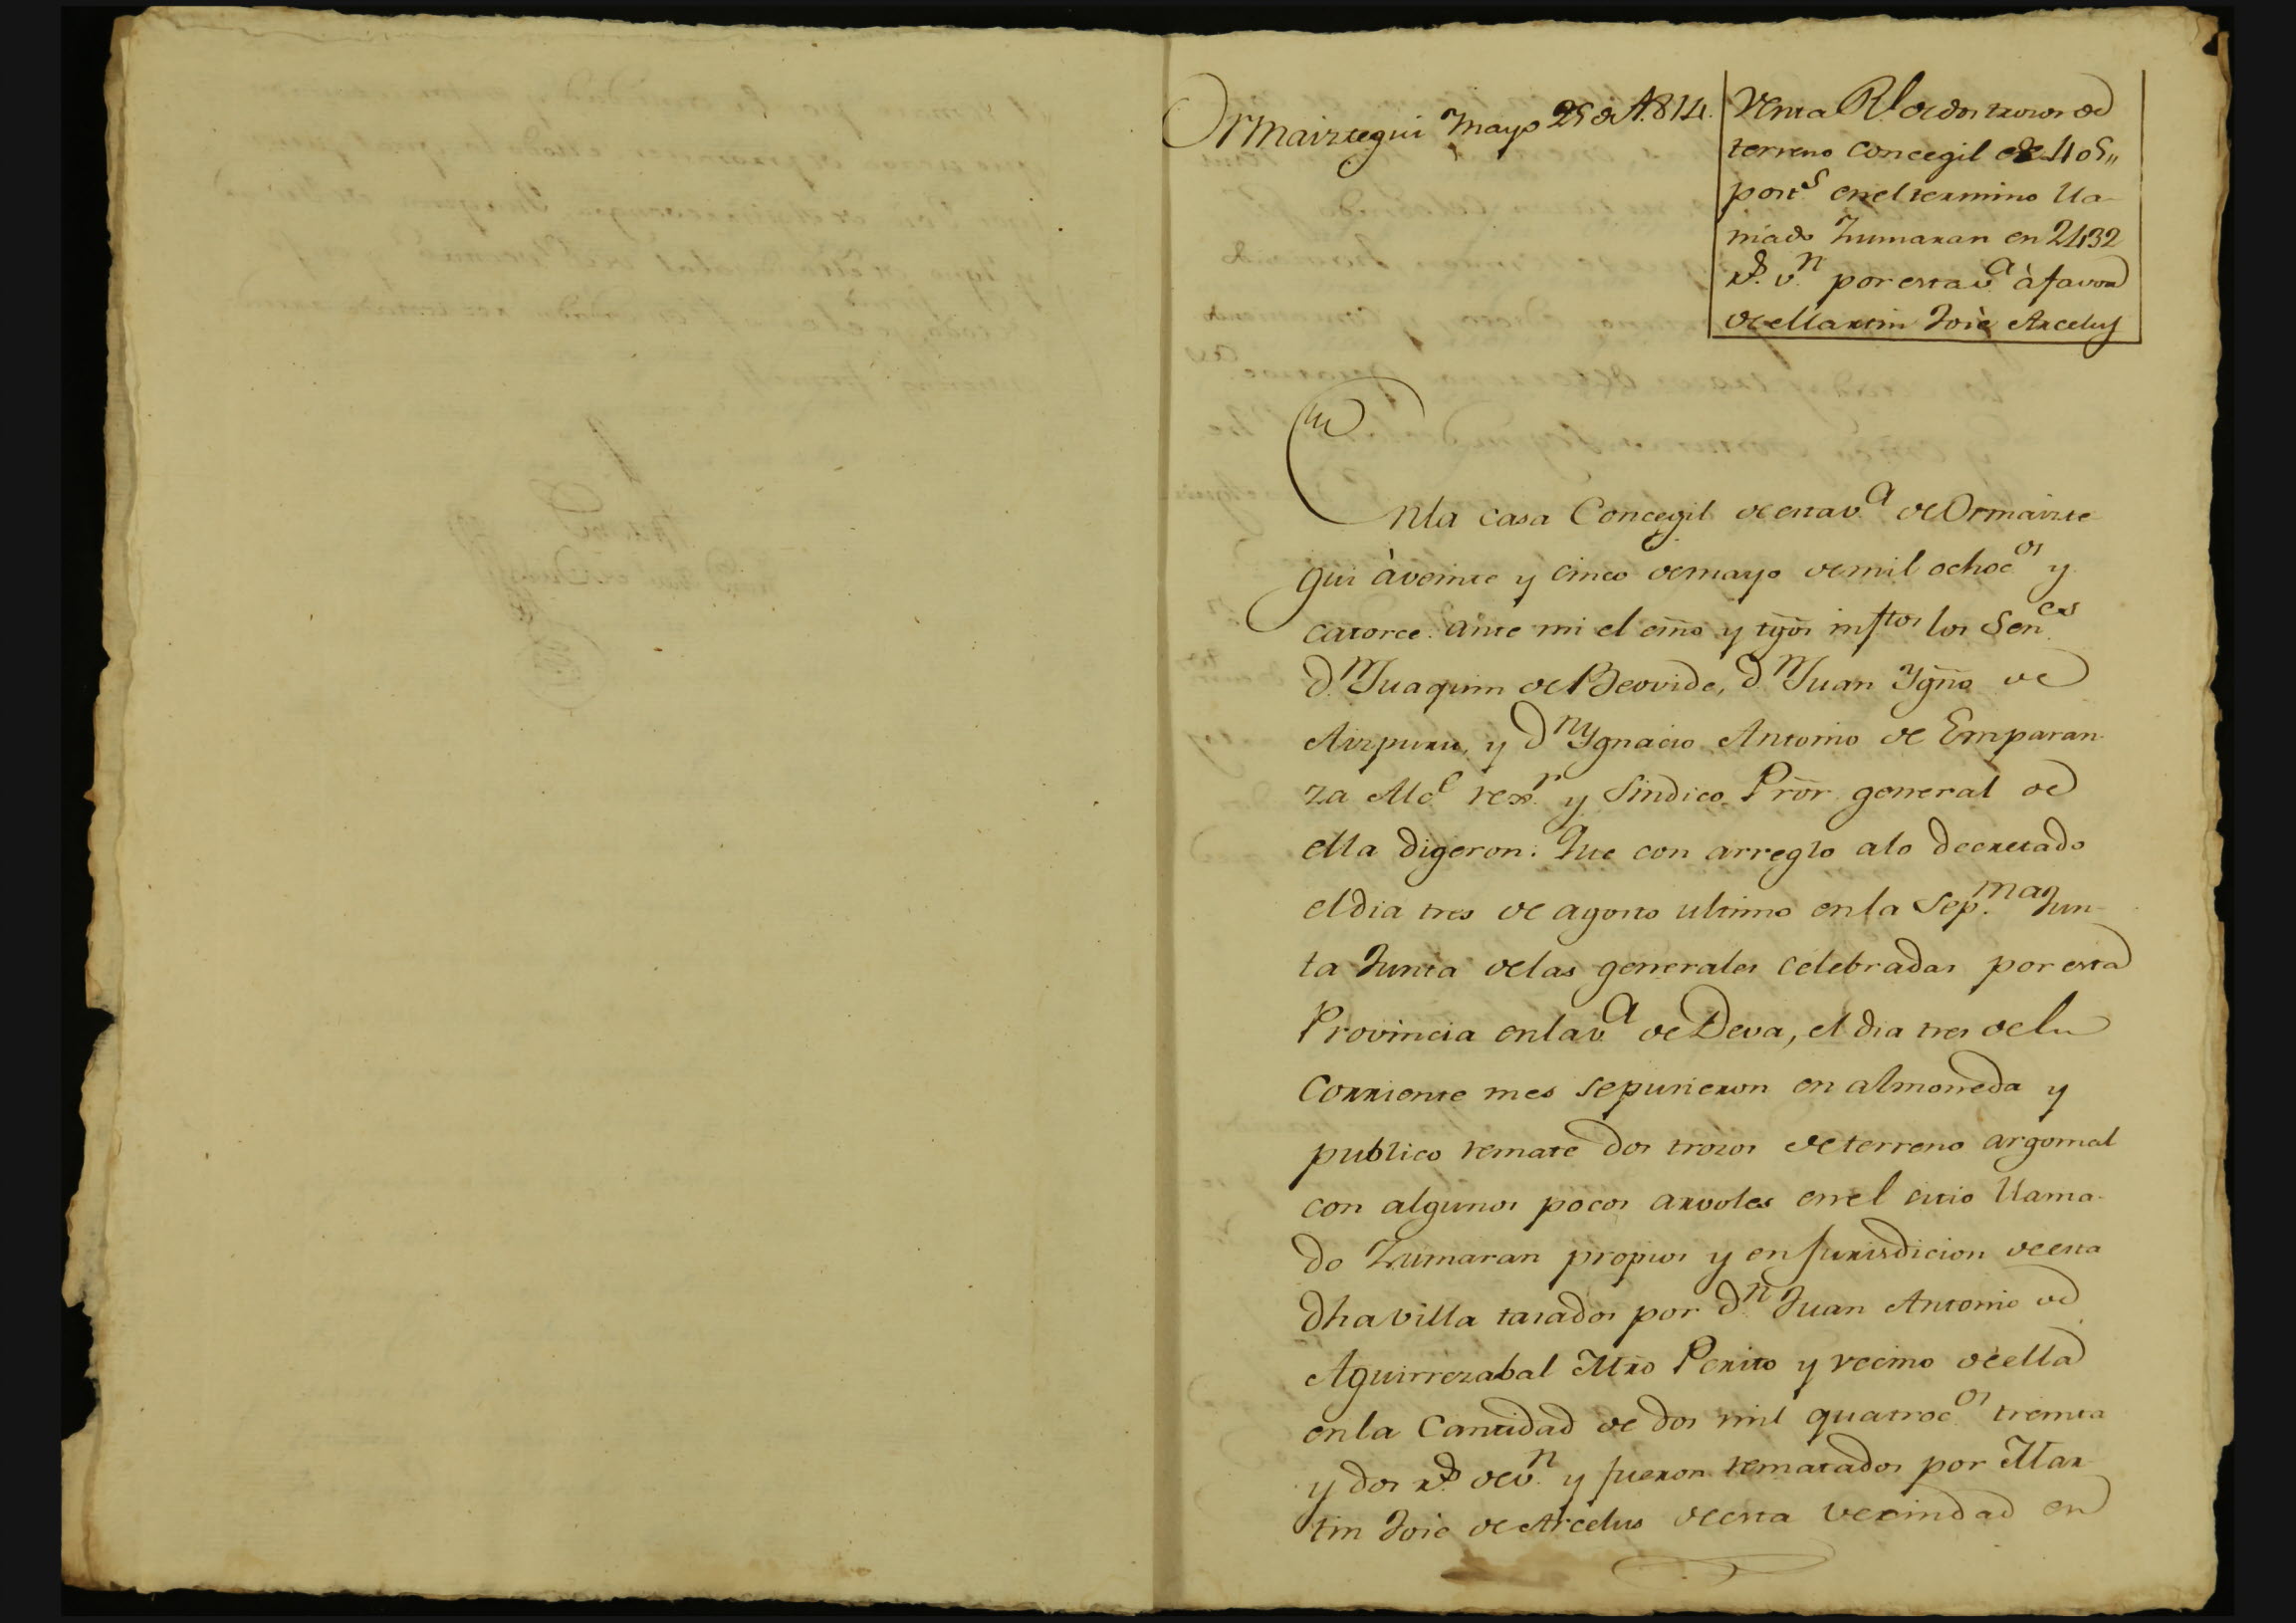 Ormaiztegui Mayo 25 de 1.814.
Venta Rl. de dos trozos de
terreno concegil de 405,,
post.s en el termino lla-
mado Zumaran en 2432
rs. vn. por esta va. à favor
de Martin José Arcelus
En la casa Concegil de esta v.a de Ormaizte-
gui à veinte y cinco de mayo de mil ochoc.os y
catorce: ante mi el esño y tgõs infstos los Señ.es
d.n Juaquin de Beovide, d.n Juan Ygño de
Aizpuru, y d.n Ygnacio Antonio de Emparan-
za Alc.e rex.r y Sindico Prõr general de
ella digeron: Que con arreglo a lo decretado
el dia tres de agosto ultimo en la Sep.ma Jun-
ta Junta de las generales celebradas por esta
Provincia en la v.a de Deva, el dia tres de lu
corriente mes se pusieron en almoneda y
publico remate dos trozos de terreno argomal
con algunos pocos arvoles en el sitio llama-
do Zumaran propios y en jurisdicion de esta
dha villa tasados por d.n Juan Antonio de
Aguirrezabal Mrõ Perito y vecino de ella
en la Cantidad de dos mil quatroc.os treinta
y dos rs. de v.n y fueron rematados por Mar
tin José de Arcelus de esta vecindad en